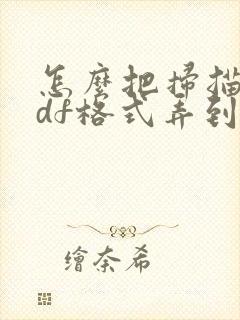 怎麼把掃描
df格式弄到
繪奈希